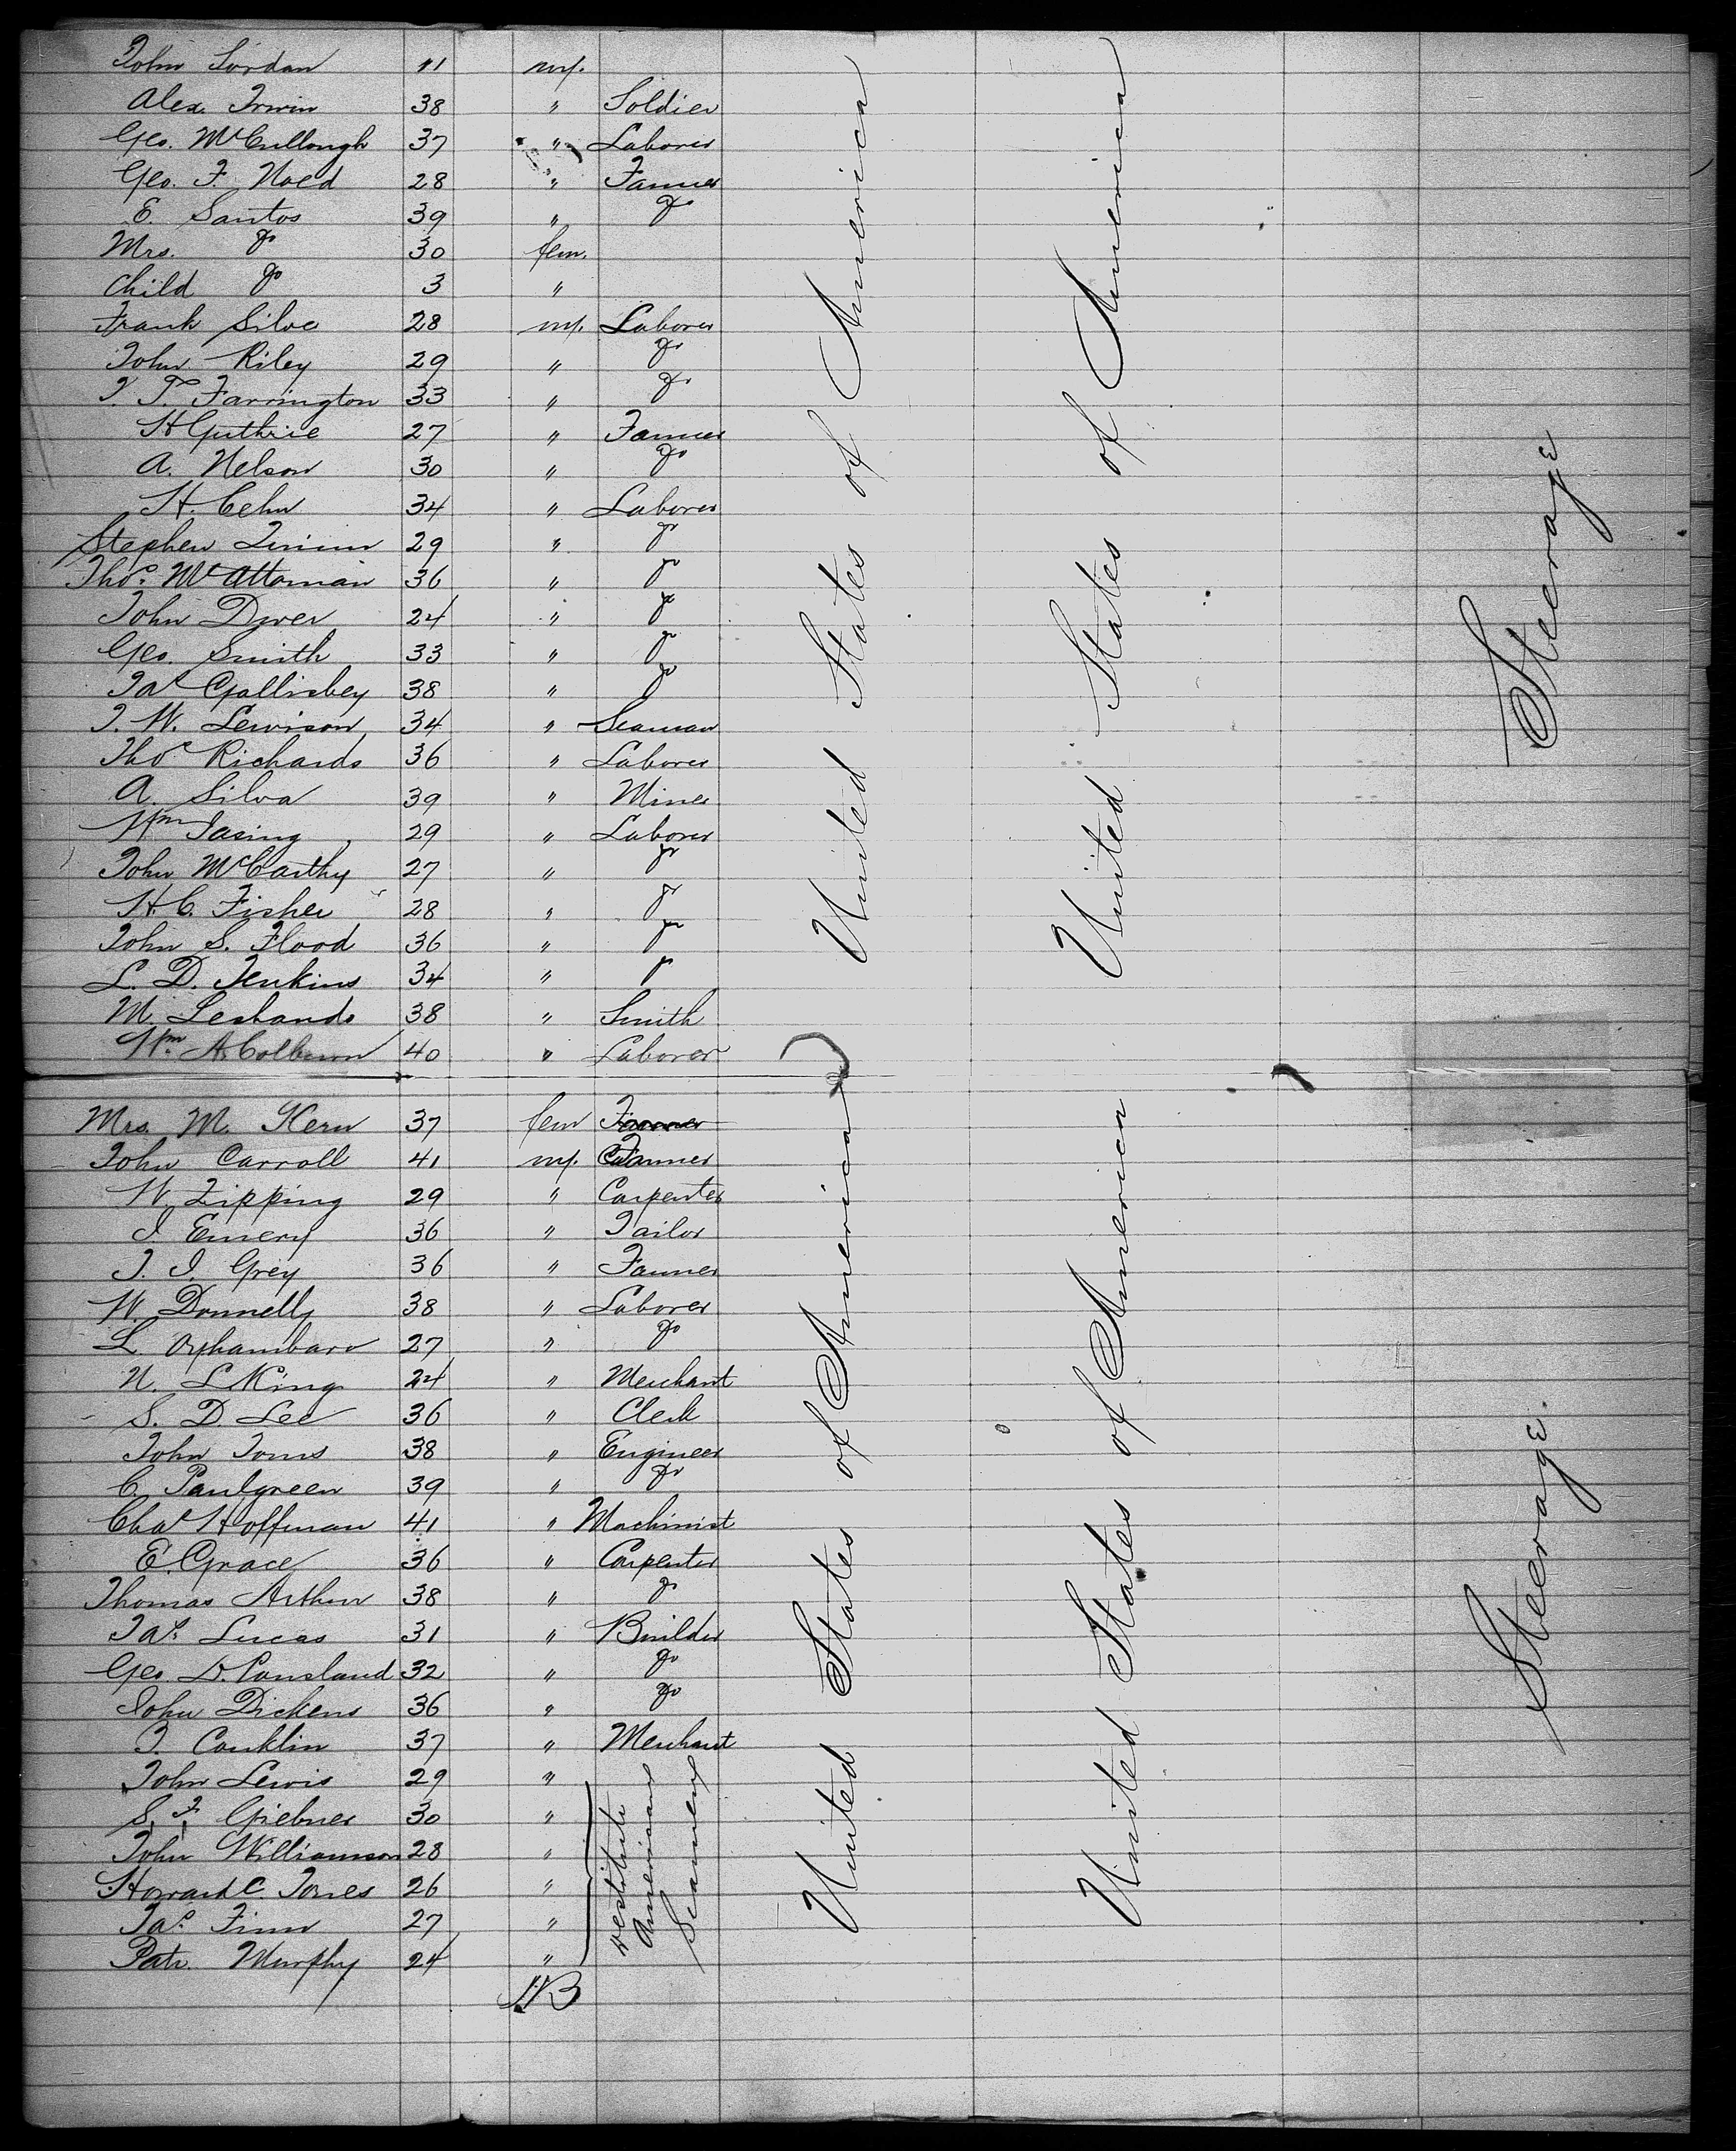 John Jordan 11 m.
Alex. Irwin 38 " Soldier
Geo. McCullough 37 " Laborer
Geo. F. Noed 28 " Farmer
E. Santos 39 " do
Mrs. do 30 fem.
Child do 3 "
Frank Silve 28 m. Laborer
John Riley 29 " do
T. T. Farrington 33 " do
H Guthrie 27 " Farmer
A. Nelson 30 " do
H. Cehn 34 " Laborer
Stephen 29 " do
Thos. McAttoman 36 " do
John Dwer 24 " do
Geo. Smith 33 " do
Jas Gallisbey 38 " do
J. W. Lewison 34 " Seaman
Thos Richards 36 " Laborer
A. Silva 39 " Miner
Wm Jasing 29 " Laborer
John McCarthy 27 " do
H. C. Fisher 28 " do
John S. Flood 36 " do
L. D. Jenkins 34 " do
M. Leshands 38 " Smith
Wm A. Colburn 40 " Laborer
United States of America
United States of America
Steerage
Mrs. M. Kern 37 fem Farmer
John Carroll 41 m. Farmer
W. Zipping 29 " Carpenter
J Emery 36 " Tailor
J. J. Grey 36 " Farmer
W. Donnelly 38 " Laborer
L. Orphambaro 27 " do
N. L King 24 " Merchant
S. D. Lee 36 " Clerk
John Toms 38 " Engineer
C. Paulgreen 39 " do
Chas Hoffman 41 " Machinist
E. Grace 36 " Carpenter
Thomas Arthur 38 " do
Jas. Lucas 31 " Builder
Geo D. Pansland 32 " do
John Dickens 36 " do
J. Conklin 37 " Merchant
John Lewis 29 "
S. J. Giebner 30 "
John Williamson 28 "
Howard C Jones 26 "
Jas. Finn 27 "
Patr. Murphy 24 "
destitute
American
Seamen
United States of America
United States of America
Steerage.